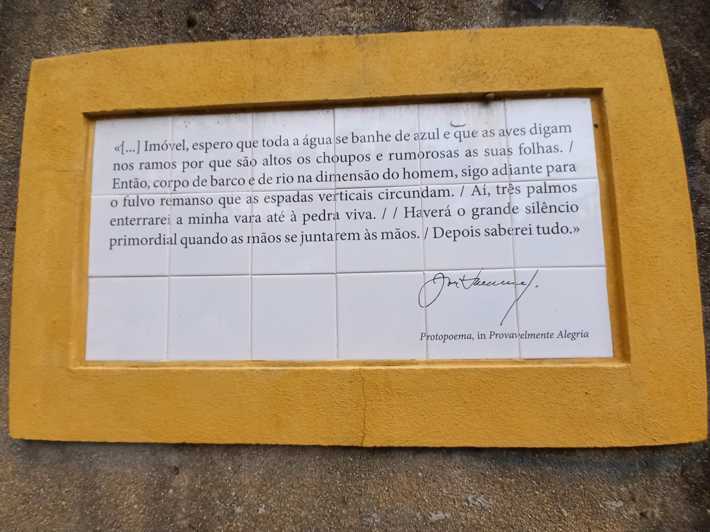 «[...] Imóvel, espero que toda a água se banhe de azul e que as aves digam
nos ramos por que são altos os choupos e rumorosas as suas folhas. /
Então, corpo de barco e de rio na dimensão do homem, sigo adiante para
o fulvo remanso que as espadas verticais circundam. / Aí, três palmos
enterrarei a minha vara até à pedra viva. / / Haverá o grande silêncio
primordial quando as mãos se juntarem às mãos. / Depois saberei tudo.»
Protopoema, in Provavelmente Alegria